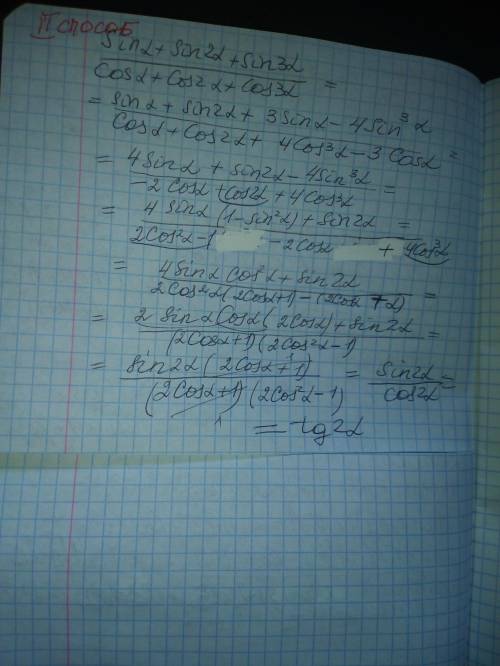 II способ
sinα + sin2α + sin3α / cosα + cos2α + cos3α =
= sinα + sin2α + 3sinα - 4sin³α / cosα + cos2α + 4cos³α - 3cosα =
= 4sinα + sin2α - 4sin³α / -2cosα + cos2α + 4cos³α =
= 4sinα (1 - sin²α) + sin2α / 2cos²α - 1 - 2cosα + 4cos³α =
= 4sinα cos²α + sin2α / 2cos²α (2cosα + 1) - (2cosα + 1) =
= 2 sinα cosα (2cosα) + sin2α / (2cosα + 1) (2cos²α - 1) =
= sin2α (2cosα + 1) / (2cosα + 1) (2cos²α - 1) = sin2α / cos2α =
= tg2α